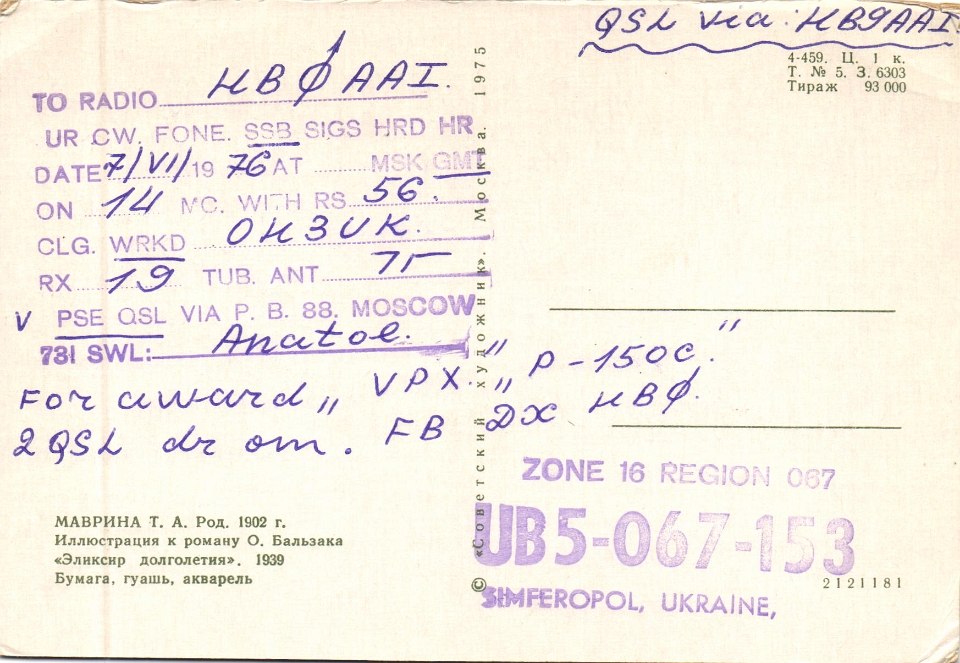 QSL via: HB9AAI.
4-459. Ц. 1 к.
Т. № 5. З. 6303
Тираж 93 000
TO RADIO HBØAAI.
UR CW. FONE. SSB SIGS HRD HR
DATE 7/VI/ 19 76 AT MSK GMT
ON 14 MC. WITH RS 56.
CLG. WRKD OH3UK.
RX 19 TUB. ANT
V PSE QSL VIA P. B. 88, MOSCOW
73! SWL: Anatol.
For award „VPX." „P-150C."
2QSL dr om. FB DX HBØ.
© «Советский художник». Москва. 1975
ZONE 16 REGION 067
UB5-067-153
SIMFEROPOL, UKRAINE,
2121181
МАВРИНА Т. А. Род. 1902 г.
Иллюстрация к роману О. Бальзака
«Эликсир долголетия». 1939
Бумага, гуашь, акварель